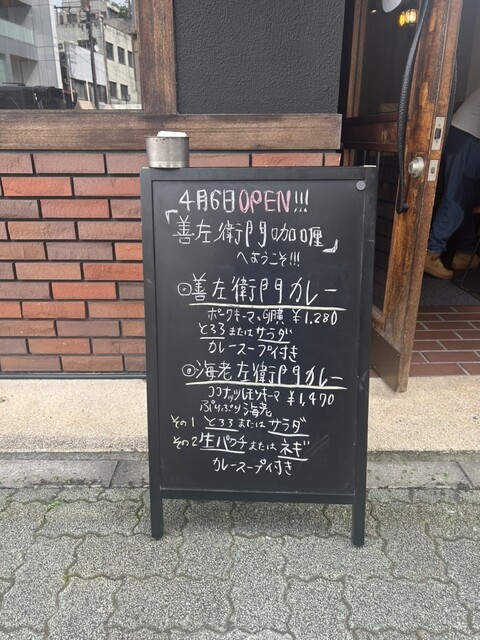 4月6日OPEN!!!
「善左衛門咖喱」
へようこそ!!!
善左衛門カレー
ポークキーマ、卵黄 ¥1,280
とろろまたはサラダ
カレースープ付き
海老左衛門カレー
ココナッツレモンキーマ ¥1,470
ぷりぷり海老
その1 とろろまたはサラダ
その2 生パクチまたはネギ
カレースープ付き